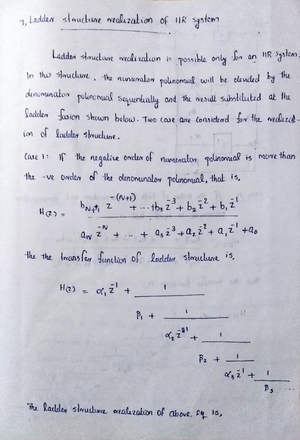 7, Ladder structure realization of IIR system
Ladder structure realization is possible only for an IIR system.
In this structure, the numerator polinomial will be divided by the
denominator polinomial sequentially and the result substituted at the
ladder fasion shown below. Two case are considerd for the realizat-
ion of ladder structure.
Case 1: If the negative order of numerator polinomial is more than
the -ve order of the denominator polynomial, that is,
H(z) = b_{N+1} z^{-(N+1)} + ... + b_3 z^{-3} + b_2 z^{-2} + b_1 z^{-1}
a_N z^{-N} + ... + a_3 z^{-3} + a_2 z^{-2} + a_1 z^{-1} + a_0
the the transfer function of ladder structure is,
H(z) = α_1 z^{-1} + 1
β_1 + 1
α_2 z^{-1} + 1
β_2 + 1
α_3 z^{-1} + 1
β_3 ...
The ladder structure realization of above eq is,